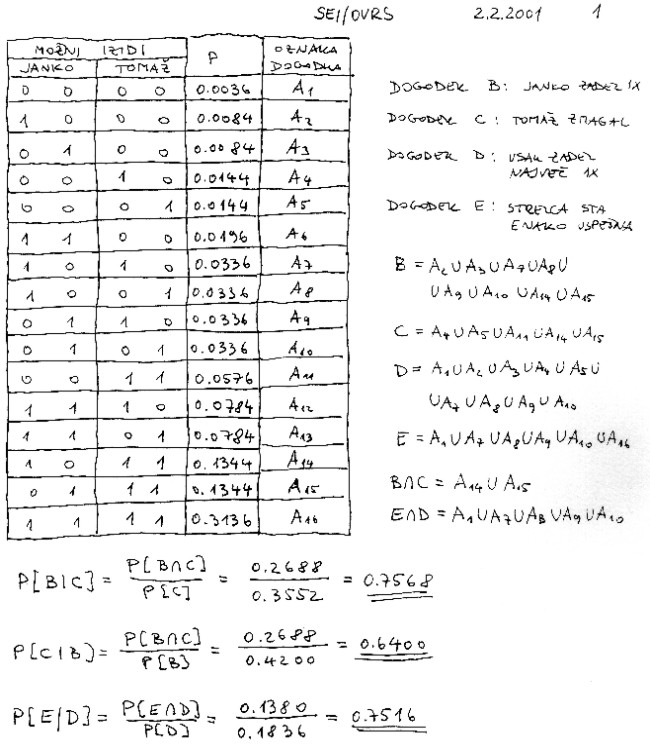 SEI/OVRS 2.2.2001 1
MOŽNI IZIDI P OZNAKA DOGODKA
JANKO TOMAŽ
0 0 0 0 0.0036 A1
1 0 0 0 0.0084 A2
0 1 0 0 0.0084 A3
0 0 1 0 0.0144 A4
0 0 0 1 0.0144 A5
1 1 0 0 0.0196 A6
1 0 1 0 0.0336 A7
1 0 0 1 0.0336 A8
0 1 1 0 0.0336 A9
0 1 0 1 0.0336 A10
0 0 1 1 0.0576 A11
1 1 1 0 0.0784 A12
1 1 0 1 0.0784 A13
1 0 1 1 0.1344 A14
0 1 1 1 0.1344 A15
1 1 1 1 0.3136 A16
DOGODEK B: JANKO ZADEL 1X
DOGODEK C: TOMAŽ ZMAGAL
DOGODEK D: VSAK ZADEL
NAJVEČ 1X
DOGODEK E: STRELCA STA
ENAKO USPEŠNA
B = A2 ∪ A3 ∪ A7 ∪ A8 ∪
∪ A9 ∪ A10 ∪ A14 ∪ A15
C = A4 ∪ A5 ∪ A11 ∪ A14 ∪ A15
D = A1 ∪ A2 ∪ A3 ∪ A4 ∪ A5 ∪
∪ A7 ∪ A8 ∪ A9 ∪ A10
E = A1 ∪ A7 ∪ A8 ∪ A9 ∪ A10 ∪ A16
B∩C = A14 ∪ A15
E∩D = A1 ∪ A7 ∪ A8 ∪ A9 ∪ A10
P[B|C] = P[B∩C] / P[C] = 0.2688 / 0.3552 = 0.7568
P[C|B] = P[B∩C] / P[B] = 0.2688 / 0.4200 = 0.6400
P[E|D] = P[E∩D] / P[D] = 0.1380 / 0.1836 = 0.7516